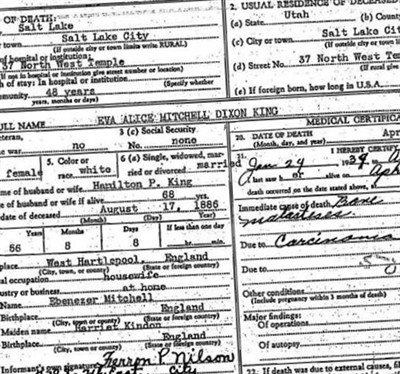 OF DEATH:
Salt Lake
town Salt Lake City
(If outside city or town limits write RURAL)
of hospital or institution:
37 North West Temple
(If not in hospital or institution give street number or location)
of stay: In hospital or institution (Specify whether
community 48 years
years, months or days)
2. USUAL RESIDENCE OF DECEASED
(a) State Utah (b) County
(c) City or town Salt Lake Ci
(If outside city or
(d) Street No. 37 North West Tem
(If
(e) If foreign born, how long in U.S.A.
FULL NAME EVA ALICE MITCHELL DIXON KING
veteran,
war. no
3 (c) Social Security
No. none
female
5. Color or
race. white
6 (a) Single, widowed, mar-
ried or divorced married
of husband or wife Hamilton P. King
of husband or wife if alive 68 yrs.
date of deceased August 17, 1886
(Month) (Day) (Year)
Years Months Days If less than one day
56 8 8 hr. min.
place West Hartlepool, England
(City, town, or county) (State or foreign country)
occupation housewife
industry or business at home
Name Ebenezer Mitchell
Birthplace England
(City, town or county) (State or foreign country)
Maiden name Harriet Kindon
Birthplace England
(City, town or county) (State or foreign country)
Informant's signature Ferron P. Nilson
City
MEDICAL CERTIFICA
20. DATE OF DEATH Apr
(Month, day, and year)
21. I hereby
Jan 24 1939
last saw h or alive on Ap
death occurred on the date stated above, at
Immediate cause of death Bone
metastases
Due to Carcinoma
Due to
Other conditions
(Include pregnancy within 3 months of death)
Major findings:
Of operations
Of autopsy
22. If death was due to external causes